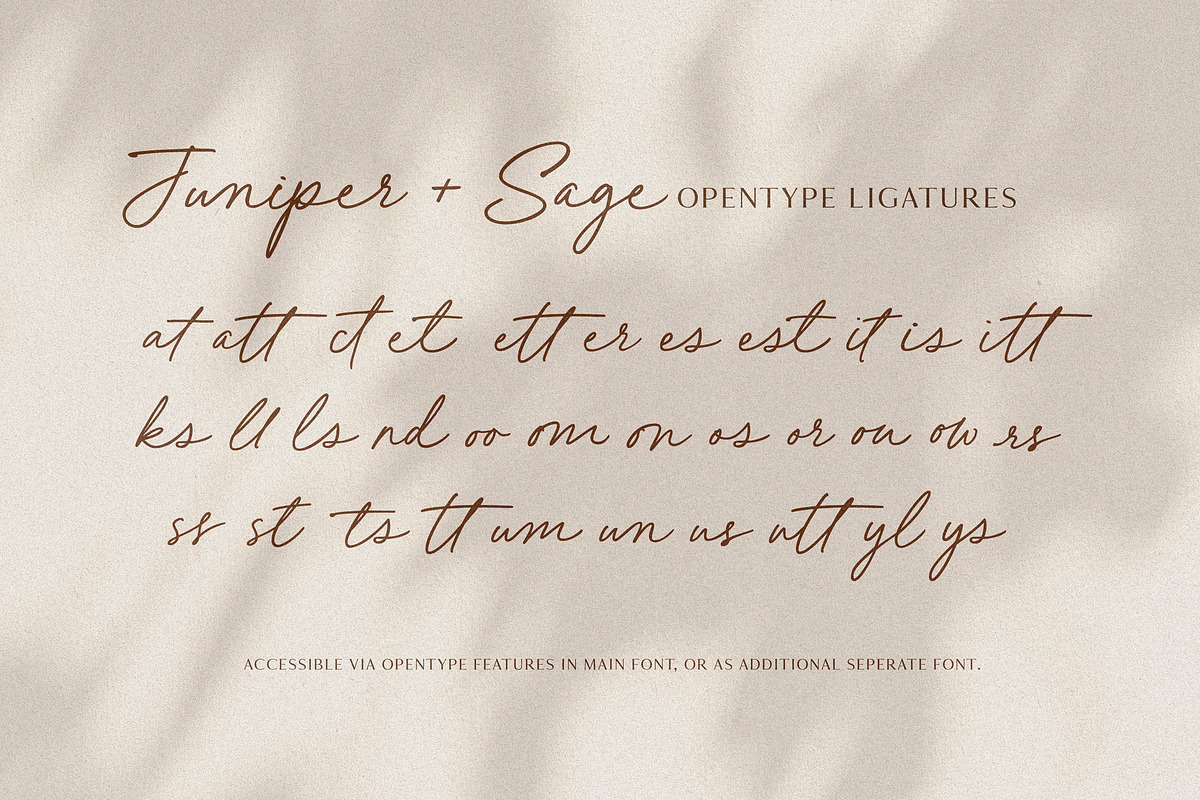 Juniper + Sage OPENTYPE LIGATURES
at att ct et ett er es est it is itt
ks ll ls nd oo om on os or ou ow rs
ss st ts tt um un us utt yl ys
ACCESSIBLE VIA OPENTYPE FEATURES IN MAIN FONT, OR AS ADDITIONAL SEPERATE FONT.